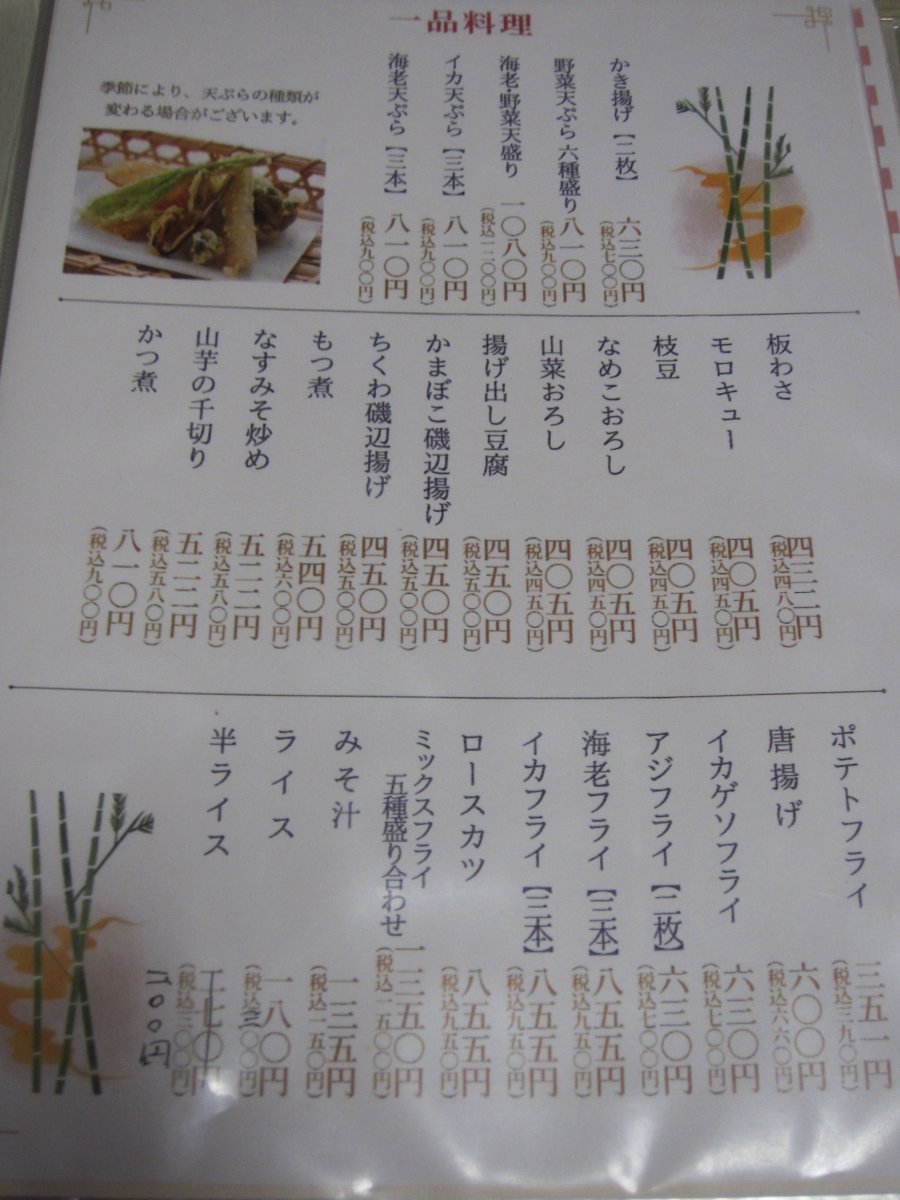 一品料理
かき揚げ【二枚】 六三〇円
(税込七〇〇円)
野菜天ぷら 六種盛り 八一〇円
(税込九〇〇円)
海老・野菜天盛り 一〇八〇円
(税込一二〇〇円)
イカ天ぷら【三本】 八一〇円
(税込九〇〇円)
海老天ぷら【三本】 八一〇円
(税込九〇〇円)
季節により、天ぷらの種類が
変わる場合がございます。
板わさ 四三二円
(税込四八〇円)
モロキュー 四〇五円
(税込四五〇円)
枝豆 四〇五円
(税込四五〇円)
なめこおろし 四〇五円
(税込四五〇円)
山菜おろし 四〇五円
(税込四五〇円)
揚げ出し豆腐 四五〇円
(税込五〇〇円)
かまぼこ磯辺揚げ 四五〇円
(税込五〇〇円)
ちくわ磯辺揚げ 四五〇円
(税込五〇〇円)
もつ煮 五四〇円
(税込六〇〇円)
なすみそ炒め 五二二円
(税込五八〇円)
山芋の千切り 五二二円
(税込五八〇円)
かつ煮 八一〇円
(税込九〇〇円)
ポテトフライ 三五一円
(税込三九〇円)
唐揚げ 六〇〇円
(税込六六〇円)
イカゲソフライ 六三〇円
(税込七〇〇円)
アジフライ【二枚】 六三〇円
(税込七〇〇円)
海老フライ【三本】 八五五円
(税込九五〇円)
イカフライ【三本】 八五五円
(税込九五〇円)
ロースカツ 八五五円
(税込九五〇円)
ミックスフライ
五種盛り合わせ 一三五〇円
(税込一五〇〇円)
みそ汁 一三五円
(税込一五〇円)
ライス 一八〇円
(税込三〇〇円)
半ライス 一七〇円
(税込三〇〇円)
二〇〇円